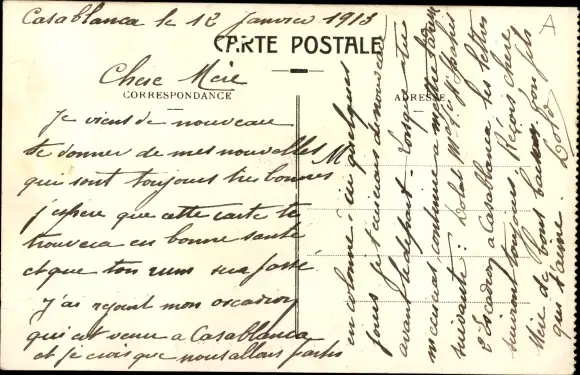 Casablanca le 12 janvier 1913
CARTE POSTALE
Chere Mère
CORRESPONDANCE
ADRESSE
Je viens de nouveau
te donner de mes nouvelles
qui sont toujours très bonnes
j'espere que cette carte te
trouvera en bonne santé
et que ton sera passé
J'ai rejoint mon escadron
qui est venu a Casablanca
et je crois que nous allons partir
en colonne d'ici quelques
jours je t'aviserais de nouveau
avant le départ. Lorsque tu
continue a mettre
suivante: Spahis
Escadron a Casablanca les lettres
suivront toujours. Reçois chère
Mère de bons baisers. Ton fils
qui t'aime.
M
A